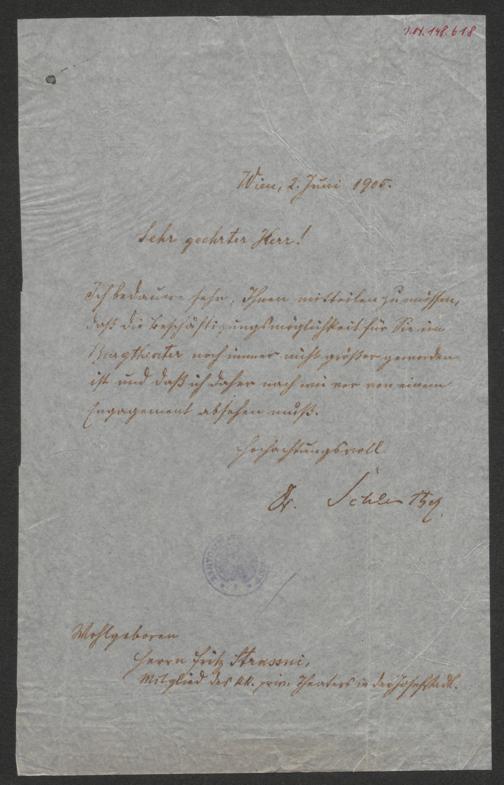 I.N. 148.618
Wien, 2. Juni 1905.
Sehr geehrter Herr!
Ich bedauere sehr, Ihnen mitteilen zu müssen,
daß die Beschäftigungsmöglichkeit für Sie im
Burgtheater noch immer nicht größer geworden
ist und daß ich daher nach wie vor von einem
Engagement absehen muß.
Hochachtungsvoll
Dr. Schlenther
Wohlgeboren
Herrn Fritz Strassni,
Mitglied des kk. priv. Theaters in der Josefstadt.